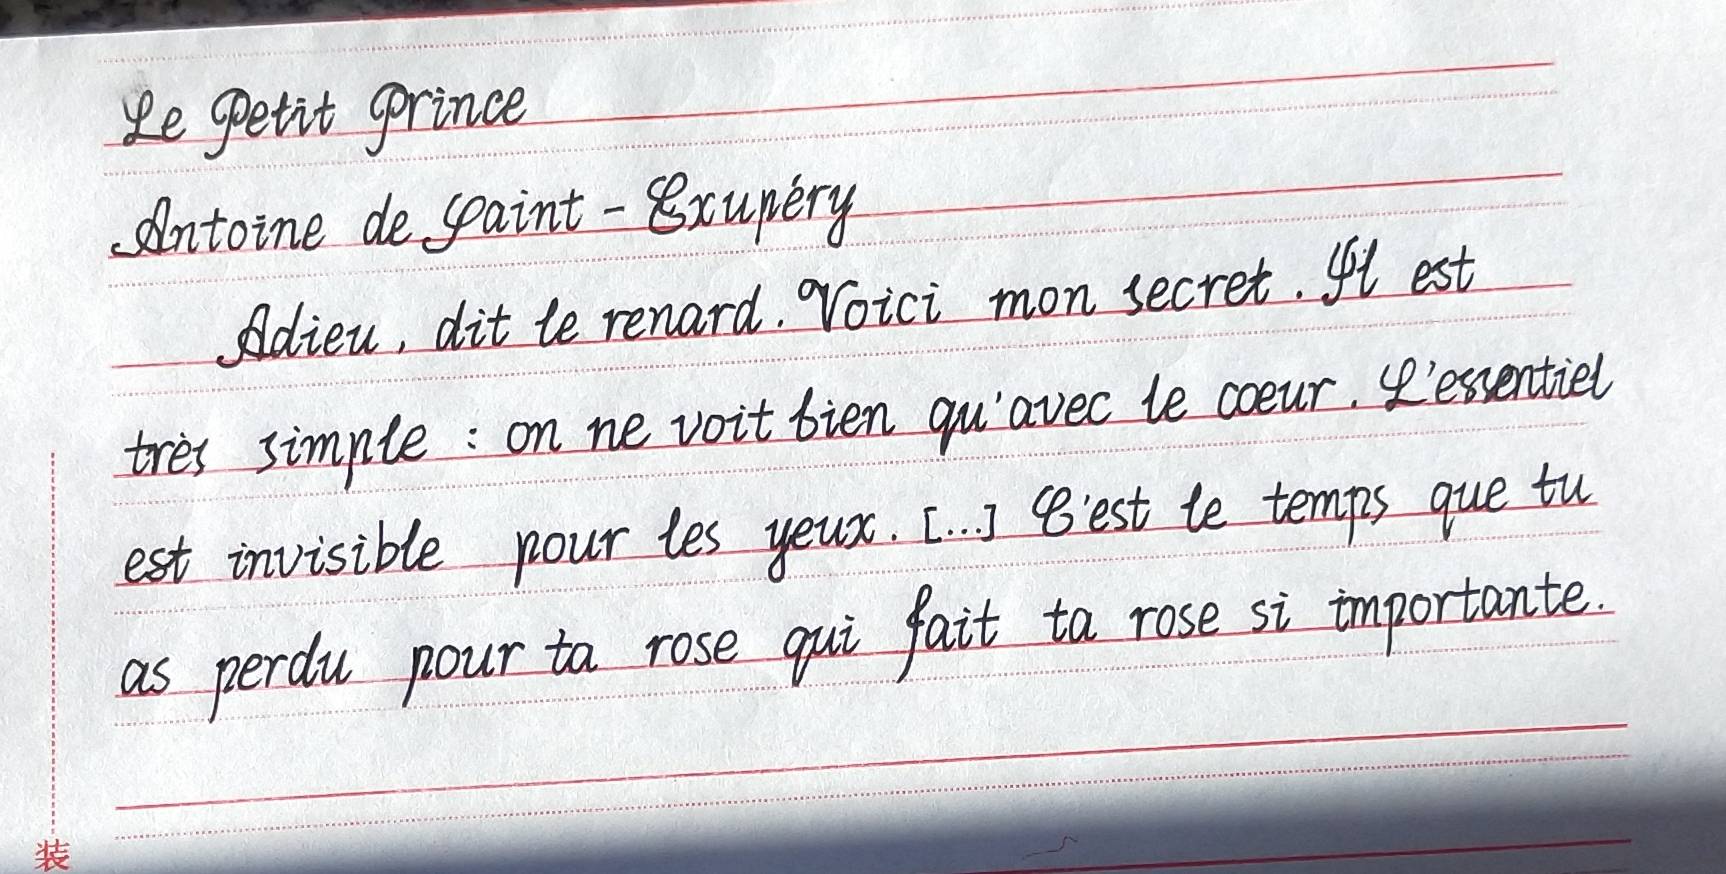 Le Petit Prince
Antoine de Saint-Exupéry
Adieu, dit le renard. Voici mon secret. Il est
très simple : on ne voit bien qu'avec le coeur. L'essentiel
est invisible pour les yeux. [...] C'est le temps que tu
as perdu pour ta rose qui fait ta rose si importante.
装